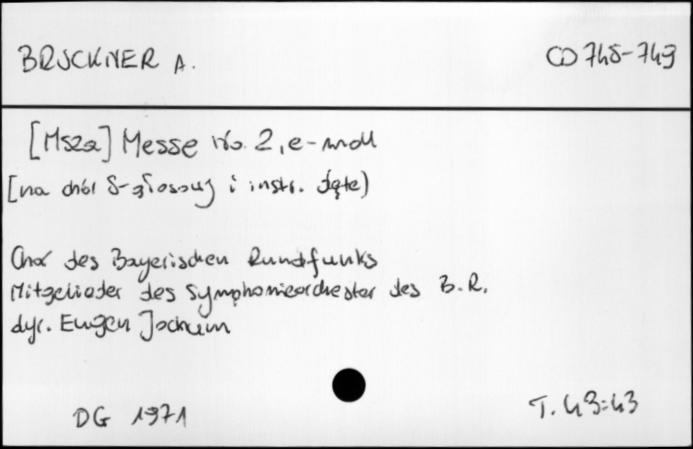 BRUCKNER A.
CD 748-749
[Msza] Messe No. 2, e-moll
[na chór 8-głosowy i instr. dęte)
Chor des Bayerischen Rundfunks
Mitglieder des Symphonieorchester des B.R.
dyr. Eugen Jochum
DG 1971
T. 43:43